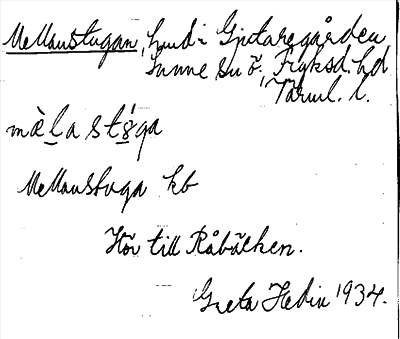 Mellanstugan, hmd i Gjutaregården
Sunne sn ö., Fryksd. hd
Värml. l.
mɛ̀l̠a stɞ́ga
Mellanstuga kb
Hör till Råbäcken.
Greta Hedin 1934.